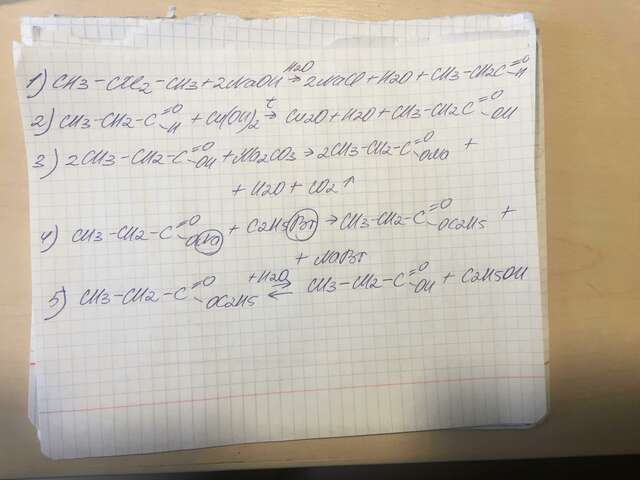 1) CH3-CCl2-CH3+2NaOH H2O→ 2NaCl+H2O+CH3-CH2C=O-H
2) CH3-CH2-C=O-H + Cu(OH)2 t→ Cu2O+H2O+CH3-CH2C=O-OH
3) 2CH3-CH2-C=O-OH + Na2CO3→2CH3-CH2-C=O-ONa +
+ H2O + CO2↑
4) CH3-CH2-C=O-ONa + C2H5Br→CH3-CH2-C=O-OC2H5 +
+ NaBr
5) CH3-CH2-C=O-OC2H5 +H2O⇄ CH3-CH2-C=O-OH + C2H5OH